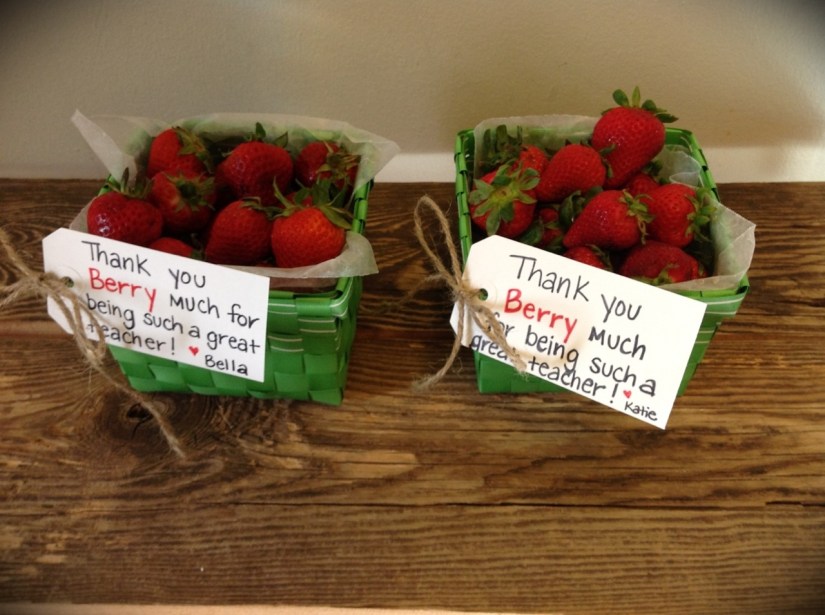 Thank you
Berry much for
being such a great
teacher! ♥
Bella
Thank you
Berry much
for being such a
great teacher! ♥
Katie